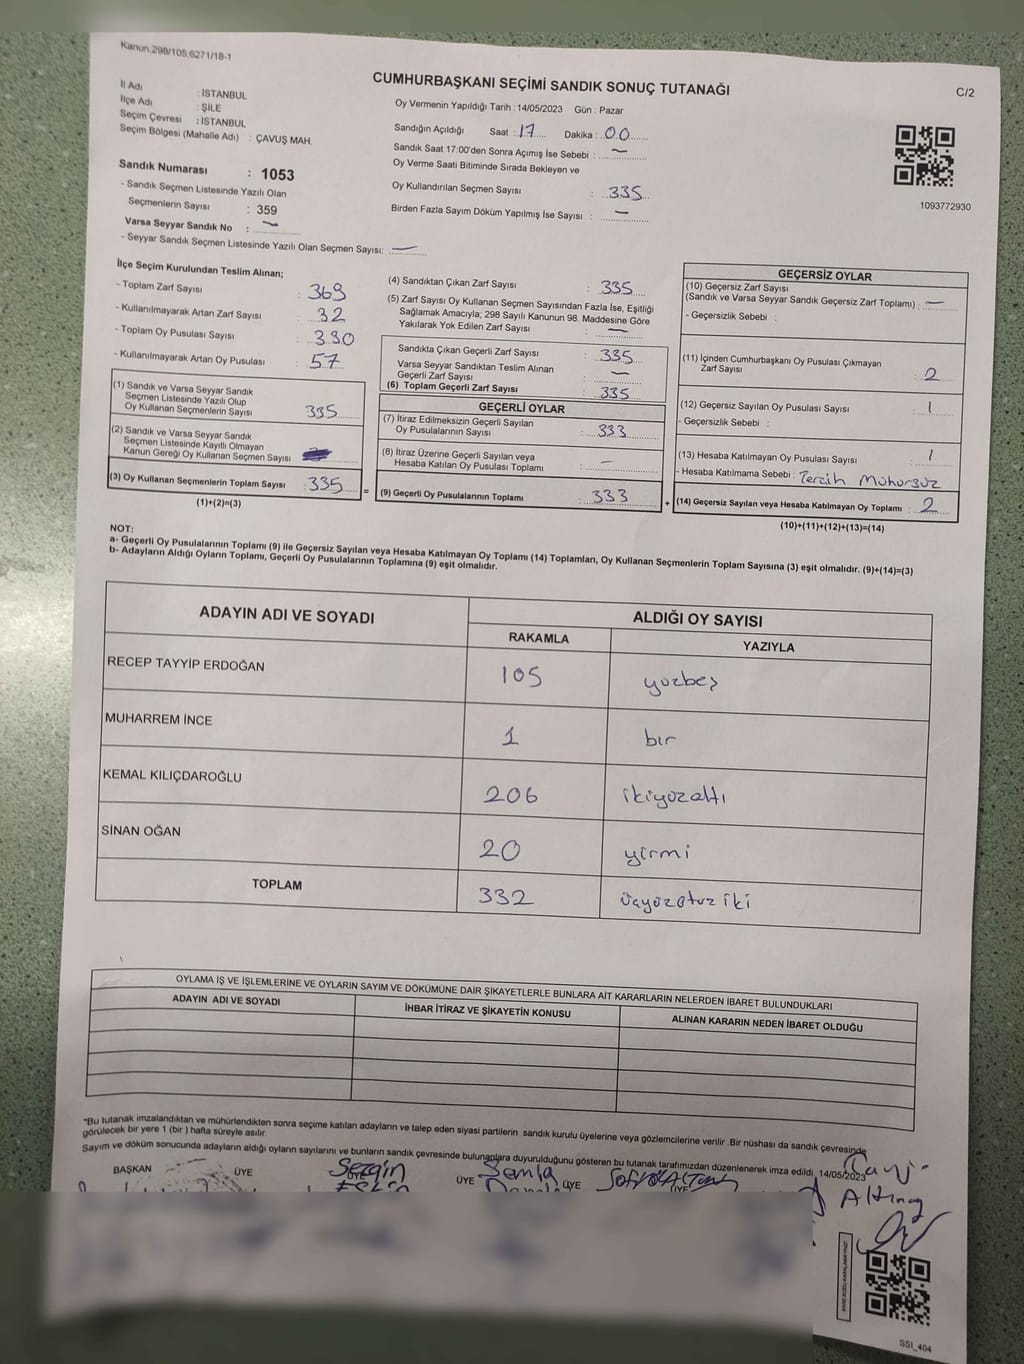 Kanun.298/105,6271/18-1
CUMHURBAŞKANI SEÇİMİ SANDIK SONUÇ TUTANAĞI
C/2
İl Adı : İSTANBUL
İlçe Adı : ŞİLE
Seçim Çevresi : İSTANBUL
Seçim Bölgesi (Mahalle Adı) : ÇAVUŞ MAH.
Oy Vermenin Yapıldığı Tarih : 14/05/2023 Gün : Pazar
Sandığın Açıldığı Saat : 17 Dakika : 00
Sandık Saat 17:00'den Sonra Açımış İse Sebebi : —
Oy Verme Saati Bitiminde Sırada Bekleyen ve
Oy Kullandırılan Seçmen Sayısı : 335
Birden Fazla Sayım Döküm Yapılmış İse Sayısı : —
1093772930
Sandık Numarası : 1053
- Sandık Seçmen Listesinde Yazılı Olan
Seçmenlerin Sayısı : 359
Varsa Seyyar Sandık No : —
- Seyyar Sandık Seçmen Listesinde Yazılı Olan Seçmen Sayısı: —
İlçe Seçim Kurulundan Teslim Alınan;
- Toplam Zarf Sayısı : 369
- Kullanılmayarak Artan Zarf Sayısı : 32
- Toplam Oy Pusulası Sayısı : 390
- Kullanılmayarak Artan Oy Pusulası : 57
(1) Sandık ve Varsa Seyyar Sandık
Seçmen Listesinde Yazılı Olup
Oy Kullanan Seçmenlerin Sayısı 335
(2) Sandık ve Varsa Seyyar Sandık
Seçmen Listesinde Kayıtlı Olmayan
Kanun Gereği Oy Kullanan Seçmen Sayısı
(3) Oy Kullanan Seçmenlerin Toplam Sayısı : 335
(1)+(2)=(3)
(4) Sandıktan Çıkan Zarf Sayısı : 335
(5) Zarf Sayısı Oy Kullanan Seçmen Sayısından Fazla İse, Eşitliği
Sağlamak Amacıyla; 298 Sayılı Kanunun 98. Maddesine Göre
Yakılarak Yok Edilen Zarf Sayısı : —
Sandıkta Çıkan Geçerli Zarf Sayısı : 335
Varsa Seyyar Sandıktan Teslim Alınan
Geçerli Zarf Sayısı : —
(6) Toplam Geçerli Zarf Sayısı : 335
GEÇERLİ OYLAR
(7) İtiraz Edilmeksizin Geçerli Sayılan
Oy Pusulalarının Sayısı : 333
(8) İtiraz Üzerine Geçerli Sayılan veya
Hesaba Katılan Oy Pusulası Toplamı : —
= (9) Geçerli Oy Pusulalarının Toplamı : 333
GEÇERSİZ OYLAR
(10) Geçersiz Zarf Sayısı
(Sandık ve Varsa Seyyar Sandık Geçersiz Zarf Toplamı) : —
- Geçersizlik Sebebi :
(11) İçinden Cumhurbaşkanı Oy Pusulası Çıkmayan
Zarf Sayısı : 2
(12) Geçersiz Sayılan Oy Pusulası Sayısı : 1
- Geçersizlik Sebebi :
(13) Hesaba Katılmayan Oy Pusulası Sayısı : 1
- Hesaba Katılmama Sebebi : Tercih Mühürsüz
+ (14) Geçersiz Sayılan veya Hesaba Katılmayan Oy Toplamı : 2
(10)+(11)+(12)+(13)=(14)
NOT:
a- Geçerli Oy Pusulalarının Toplamı (9) ile Geçersiz Sayılan veya Hesaba Katılmayan Oy Toplamı (14) Toplamları, Oy Kullanan Seçmenlerin Toplam Sayısına (3) eşit olmalıdır. (9)+(14)=(3)
b- Adayların Aldığı Oyların Toplamı, Geçerli Oy Pusulalarının Toplamına (9) eşit olmalıdır.
ADAYIN ADI VE SOYADI ALDIĞI OY SAYISI
RAKAMLA YAZIYLA
RECEP TAYYİP ERDOĞAN 105 yüzbeş
MUHARREM İNCE 1 bir
KEMAL KILIÇDAROĞLU 206 ikiyüzaltı
SİNAN OĞAN 20 yirmi
TOPLAM 332 üçyüzotuz iki
OYLAMA İŞ VE İŞLEMLERİNE VE OYLARIN SAYIM VE DÖKÜMÜNE DAİR ŞİKAYETLERLE BUNLARA AİT KARARLARIN NELERDEN İBARET BULUNDUKLARI
ADAYIN ADI VE SOYADI İHBAR İTİRAZ VE ŞİKAYETİN KONUSU ALINAN KARARIN NEDEN İBARET OLDUĞU
*Bu tutanak imzalandıktan ve mühürlendikten sonra seçime katılan adayların ve talep eden siyasi partilerin sandık kurulu üyelerine veya gözlemcilerine verilir .Bir nüshası da sandık çevresinde
görülecek bir yere 1 (bir ) hafta süreyle asılır.
Sayım ve döküm sonucunda adayların aldığı oyların sayılarını ve bunların sandık çevresinde bulunanlara duyurulduğunu gösteren bu tutanak tarafımızdan düzenlenerek imza edildi. 14/05/2023
BAŞKAN ÜYE Sezgin ÜYE Semla ÜYE ÜYE
Altınay
SSI_404